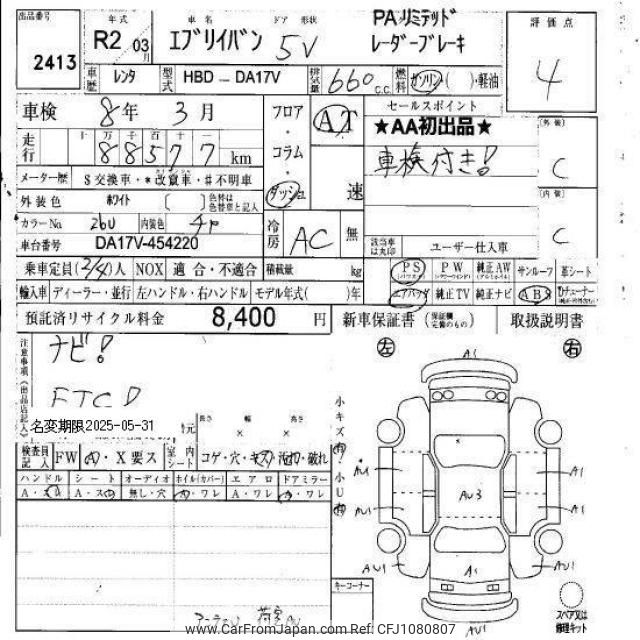 出品番号 年式 車名 ドア形状 PAリミテッド 評価点
2413 R2 03月 エブリイバン 5V レーダーブレーキ 4
車歴 レンタ 型式 HBD - DA17V 排気量 660 c.c. 燃料 ガソリン・( )・軽油
車検 8年 3月 フロア・コラム・ダッシュ AT 速 セールスポイント
★AA初出品★ (外装) C
走行 十万千百十一 88577 km 車検付き!
メーター歴 S交換車・*改竄車・#不明車 (内装) C
外装色 ホワイト ( ) 色替は色替車と記入
カラーNo 26U 内装色 チャ 冷房 AC 無
車台番号 DA17V-454220 該当車は丸印 ユーザー仕入車
乗車定員(2/4)人 NOX 適合・不適合 積載量 kg PS PW 純正AW サンルーフ 革シート
輸入車 ディーラー・並行 左ハンドル・右ハンドル モデル年式( )年 エアバッグ 純正TV 純正ナビ ABS
預託済リサイクル料金 8,400円 新車保証書 (保証欄完備のもの) 取扱説明書
注意事項(出品店記入) ナビ! 左 右
ETC
名変期限2025-05-31 長さ 幅 高さ
× ×
検査員記入 FW A・X要ス 室内シート コゲ・穴・キズ・汚れ・破れ
ハンドル シート オーディオ ホイル(カバー) エアロ ドアミラー
A・スレ A・スレ 無し・穴 A・ワレ A・ワレ A・ワレ
小キズ 小U
A1
AU1 A1
AU3
AU1 A1
AU1 A1 AU1
AU1
キーコーナー
スペア又は修理キット
www.CarFromJapan.com Ref: CFJ1080807